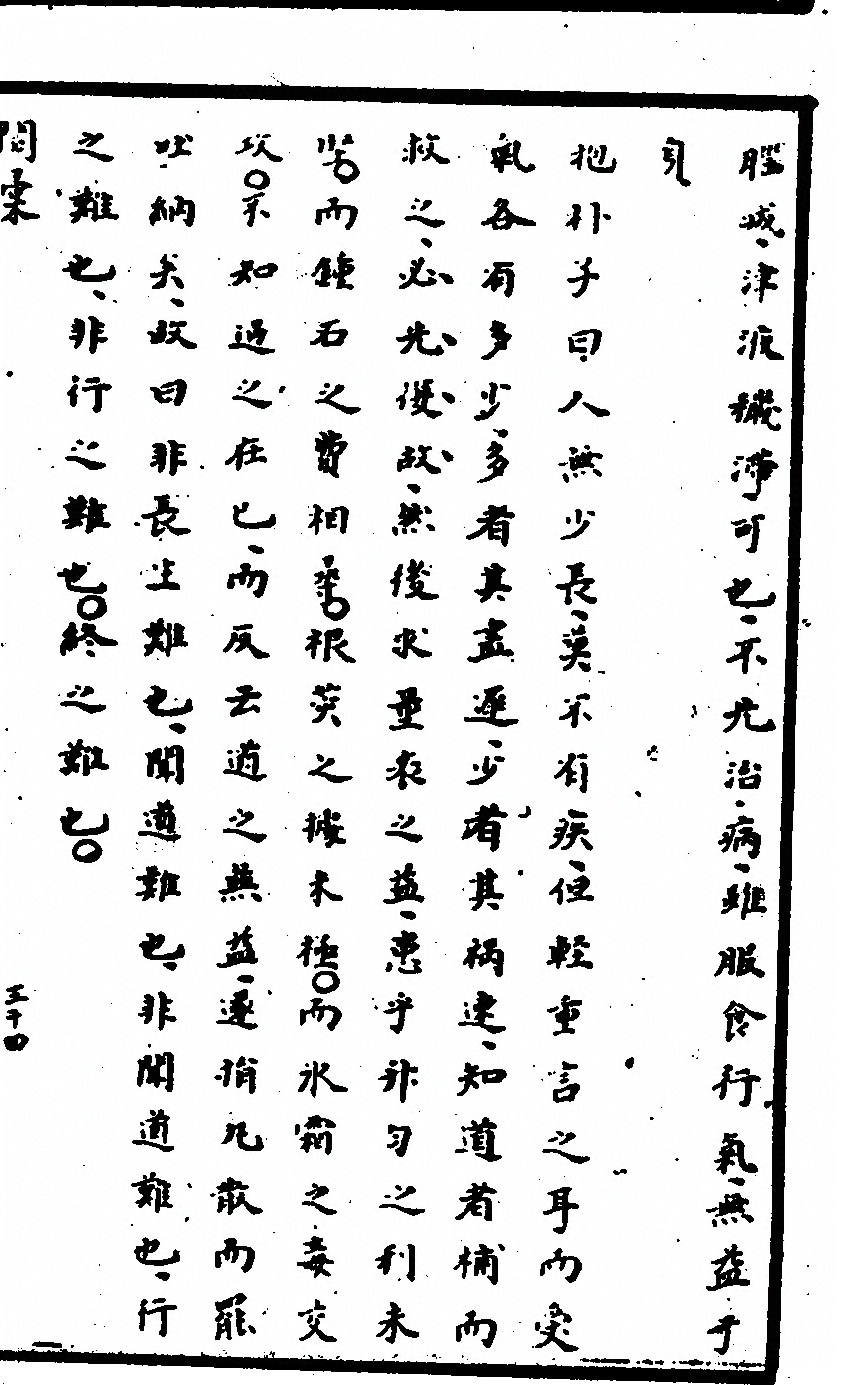 腦減、津液穢滯可也、不先治病、雖服食行氣、無益于
躬
抱朴子曰、人無少長、莫不有疾、但輕重言之耳而受
氣各有多少、多者其盡遲、少者其禍速、知道者補而
救之、必先復故、然後求量表之益、患乎升勺之利未
堅。而鍾石之費相尋。根荄之據未極。而冰霜之毒交
攻。不知過之在己、而反云道之無益、遂捐丸散而罷
吐納矣、故曰非長生難也、聞道難也、非聞道難也、行
之難也、非行之難也。終之難也。
三十四